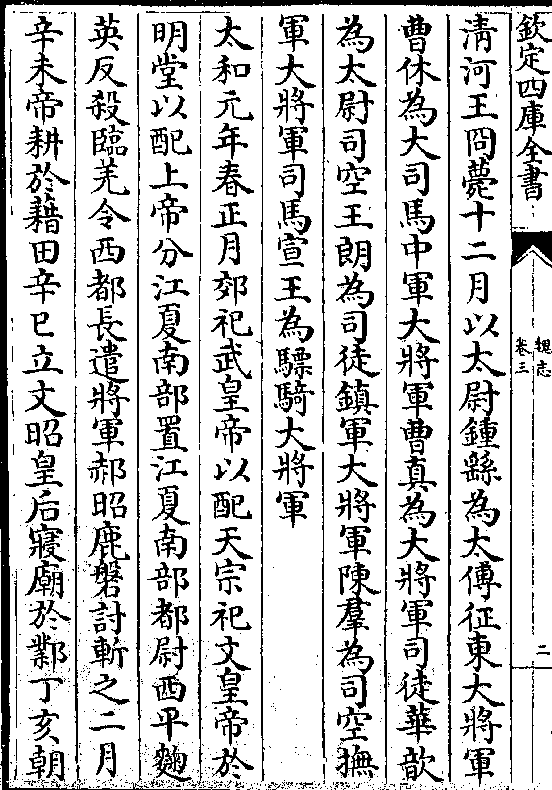 欽定四庫全書
魏志
卷三
二
淸河王冏薨十二月以太尉鍾繇為太傅征東大將軍
曹休為大司馬中軍大將軍曹真為大將軍司徒華歆
為太尉司空王朗為司徒鎮軍大將軍陳羣為司空撫
軍大將軍司馬宣王為驃騎大將軍
太和元年春正月郊祀武皇帝以配天宗祀文皇帝於
明堂以配上帝分江夏南部置江夏南部都尉西平麴
英反殺臨羌令西都長遣將軍郝昭鹿磐討斬之二月
辛未帝耕於籍田辛巳立文昭皇后寢廟於鄴丁亥朝